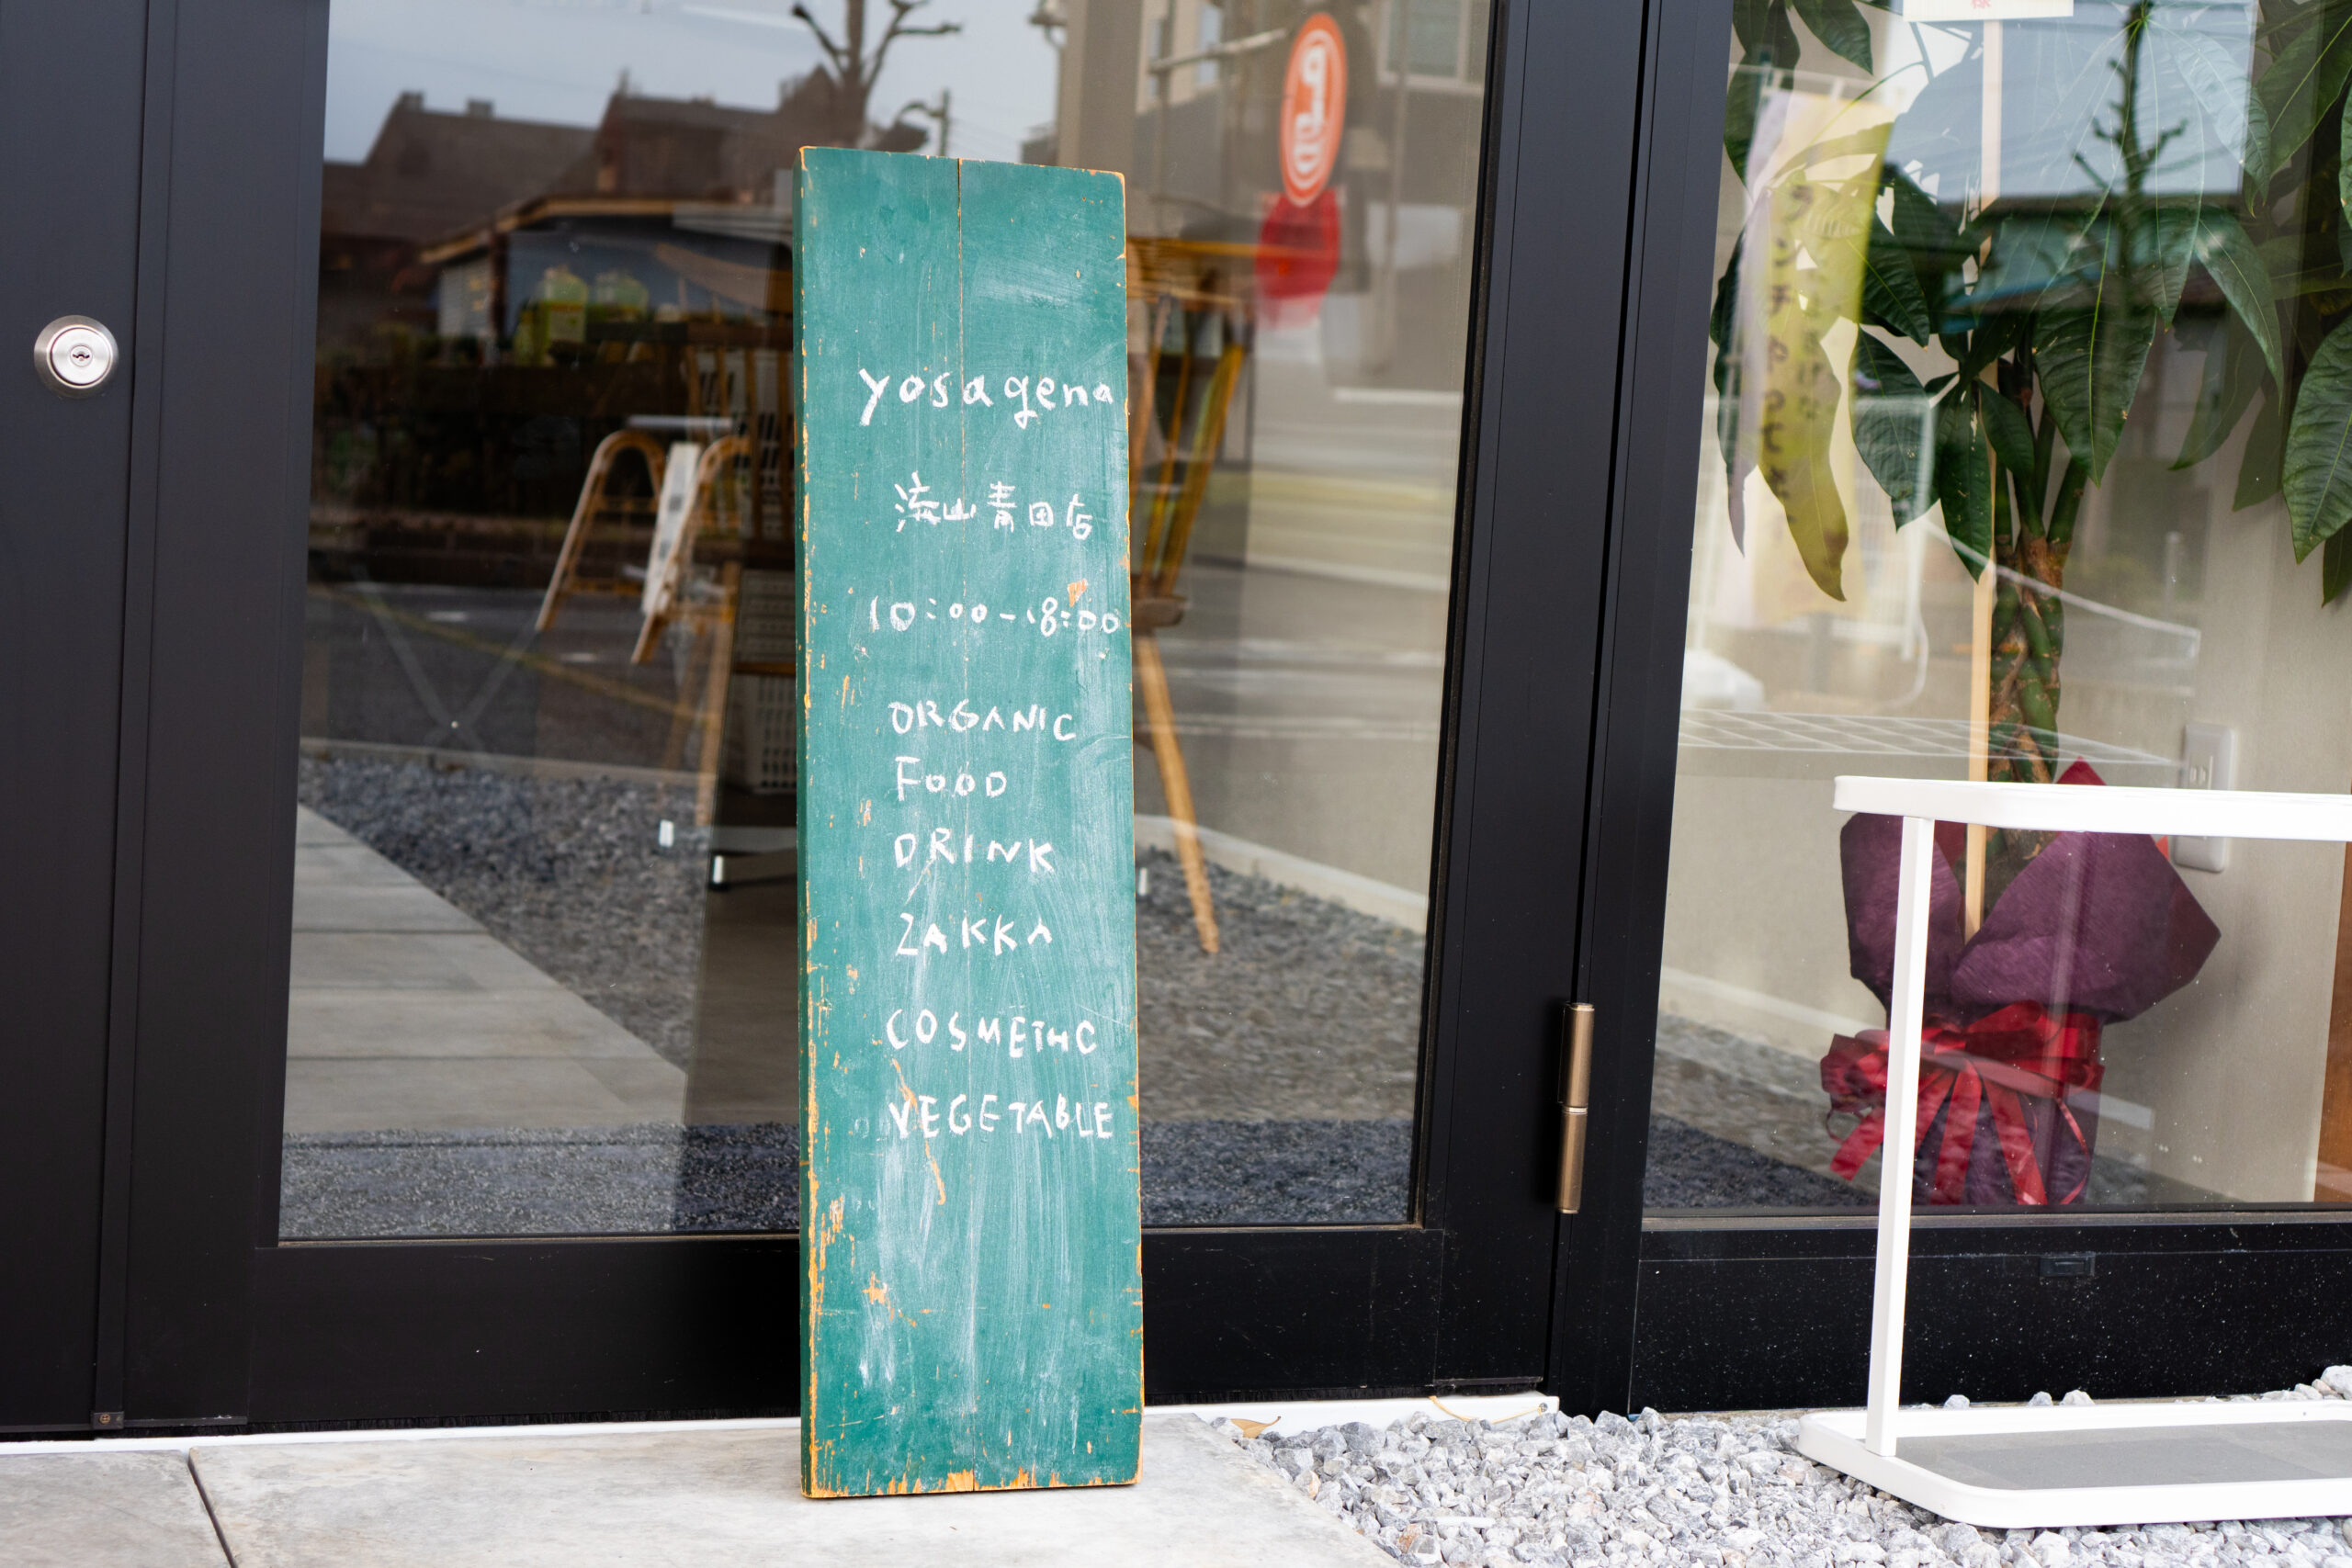 yosagena
流山青田店
10:00-18:00
ORGANIC
FOOD
DRINK
ZAKKA
COSMETIC
VEGETABLE